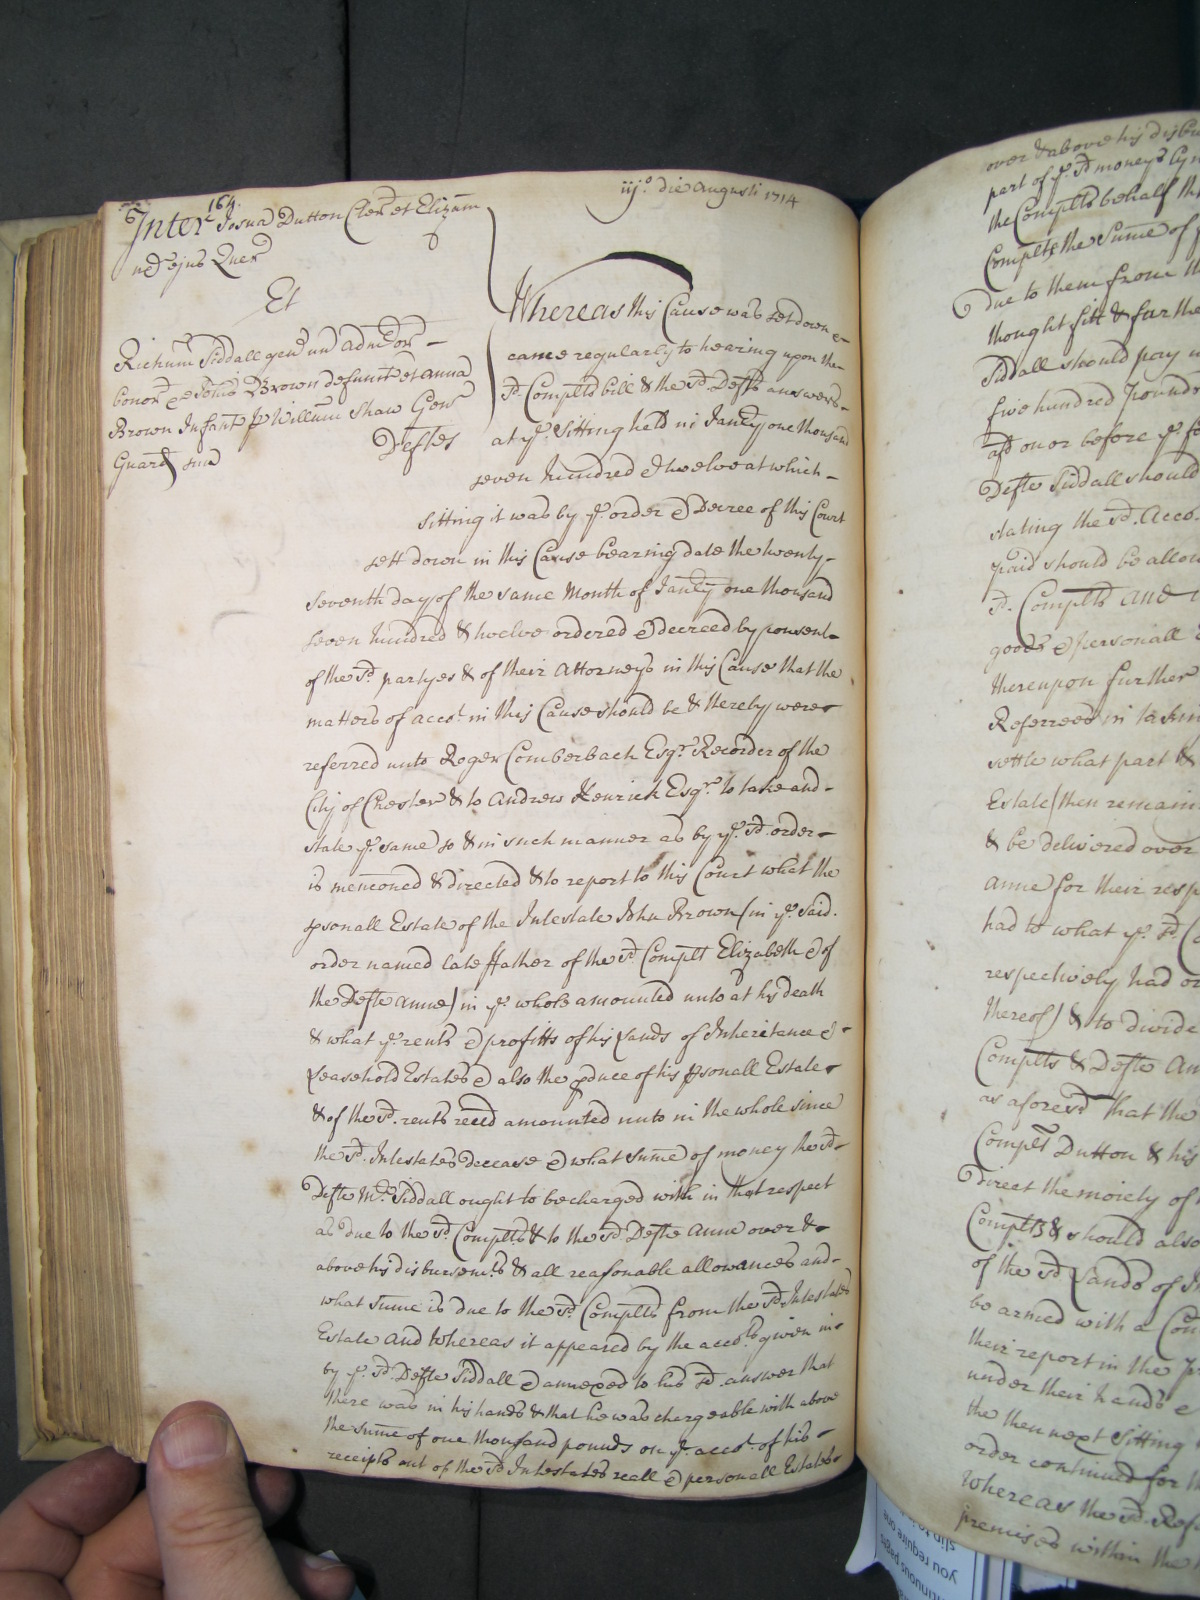 164.
iij.º die Augusti 1714
Inter Josua Dutton Cler et Elizam
ux ejus Quer
Et
Richum Siddall gen un Admcor
bonor Johis Brown defunct et Anna
Brown Infant p Willum Shaw Gen
Guard suu
Deftes
Whereas this Cause was set down &
came regularly to hearing upon the
sd. Complts bill & the sd. Defts answers
at ye. sitting held in Janry one thousand
seven hundred & twelve at which
sitting it was by ye. order & Decree of this Court
sett down in this Cause bearing date the twenty
seventh day of the same Month of Janry one thousand
seven hundred & twelve ordered & decreed by consent
of the sd. partyes & of their Attorneys in this Cause that the
matters of accot. in this Cause should be & thereby were
referred unto Roger Comberbach Esqr. Recorder of the
City of Chester & to Andrew Kenrick Esqr. to take and
state ye. same so & in such manner as by ye. sd. order
is menconed & directed & to report to this Court what the
psonall Estate of the Intestate John Brown (in ye. said
order named late ffather of the sd. Complt Elizabeth & of
the Defte Anne) in ye. whole amounted unto at his death
& what ye. rents & profitts of his Lands of Inheritance &
Leasehold Estates & also the pduce of his psonall Estate
& of the sd. rents recd amounted unto in the whole since
the sd. Intestates decease & what sume of money the sd
Defte Mr. Siddall ought to be charged with in that respect
as due to the sd. Complts & to the sd. Defte Anne over &
above his disbursemts. & all reasonable allowances and
what sume is due to the sd. Complts from the sd. Intestates
Estate And whereas it appeared by the accots. given in
by ye. sd. Defte Siddall & annexed to his sd. answer that
there was in his hands & that he was chargeable with above
the sume of one thousand pounds on ye. accot. of his
receipts out of the sd. Intestates reall & personall Estates
over & above his disbu
part of ye. sd moneys by
the Complts behalf th
Complts the sume of
due to them from th
thought fitt & furthe
Siddall should pay
five hundred pounds
afd on or before ye. f
Defte Siddall should
stating the sd. Acco
paid should be allow
sd. Complts and
goods & personall
thereupon further
Referrees in takin
settle what part &
Estate then remain
& be delivered over
Anne for their resp
had to what ye. sd. C
respectively had or
thereof) & to divide
Complts & Defte An
as aforesd that the
Complt Dutton & his
direct the moiety of
Complts & should also
of the sd Lands of I
be armed with a Com
their report in the
under their hands &
the then next sitting
order continued for th
Whereas the sd. Ref
premises within the
you require one
slip to